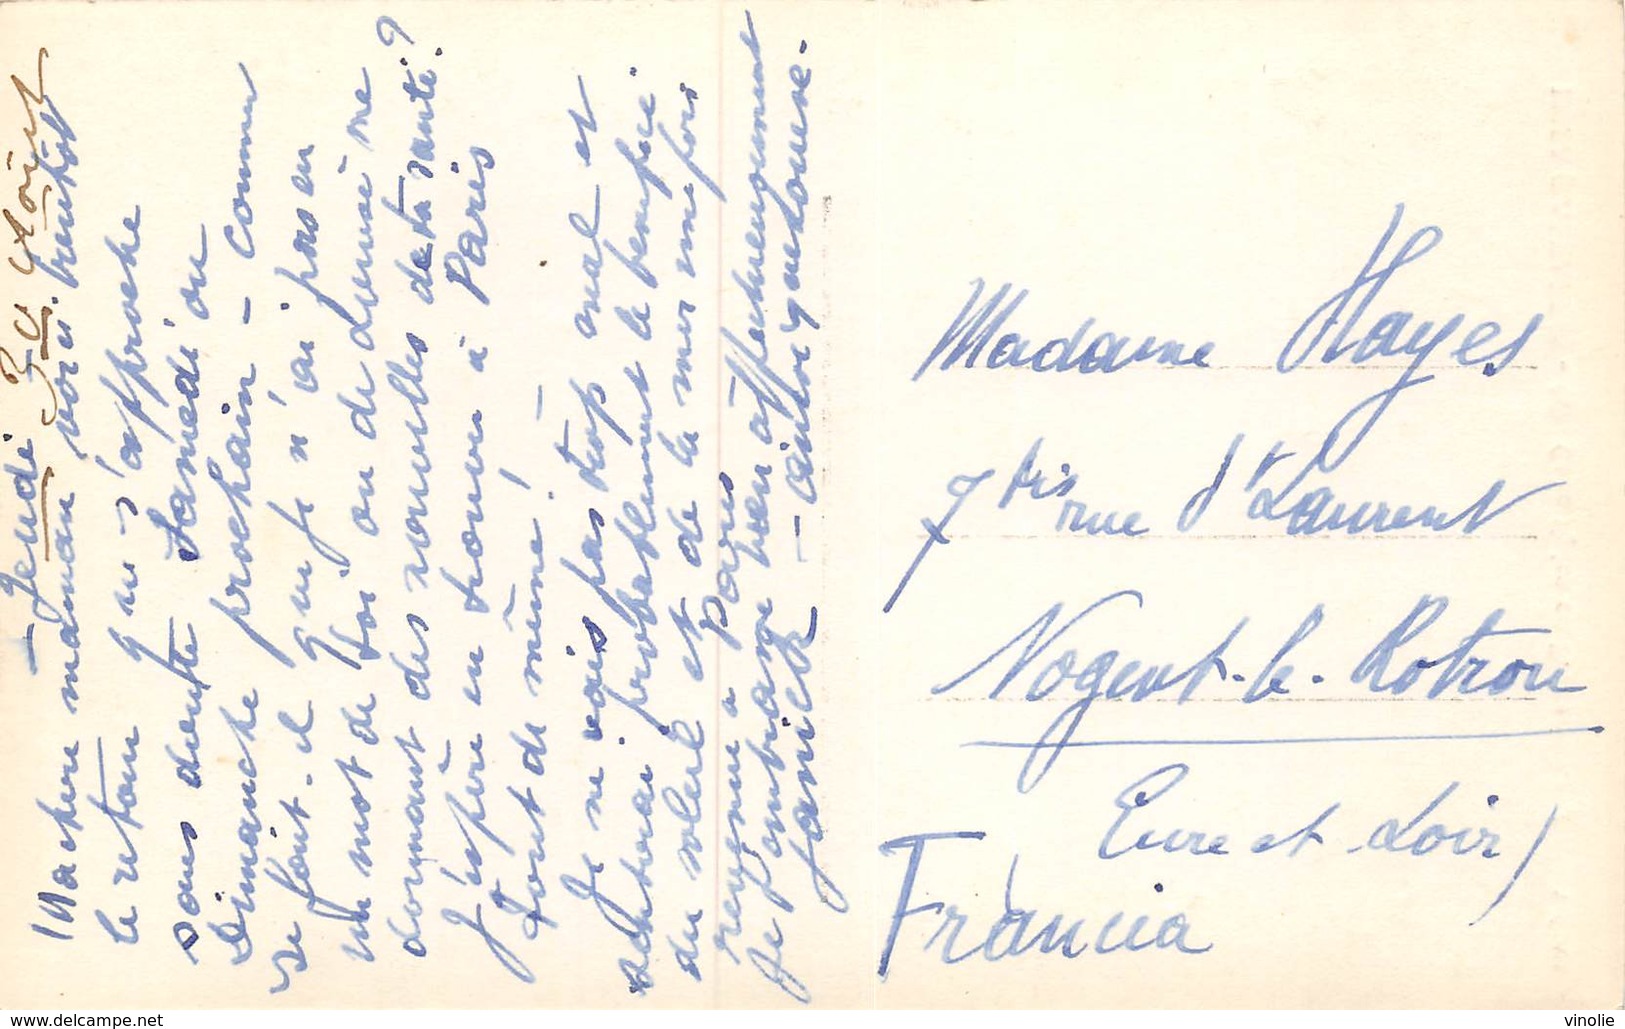 — Jeudi 30 Août
Ma chère maman voici bientôt
le retour qui s'approche
sans doute Samedi ou
Dimanche prochain — Comment
se fait-il que je n'ai pas eu
un mot de toi ou de Denise me
donnant des nouvelles de ta santé ?
J'espère en trouver à Paris
tout de même !
Je ne vais pas trop mal et
sentirai probablement le bénéfice
du soleil et de la mer une fois
revenue à Paris
Je t'embrasse bien affectueusement
Janick —
Madame Hayes
7 bis rue St Laurent
Nogent-le-Rotrou
Eure et Loir)
Francia
www.delcampe.net
vinolie